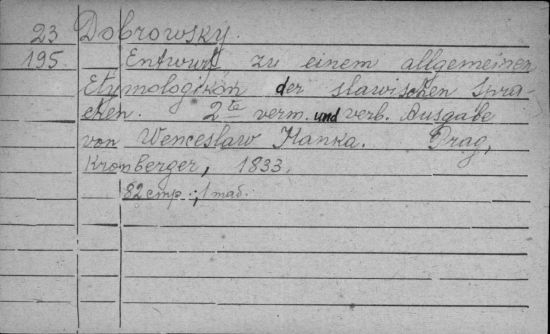 23 Dobrowsky.
195. Entwurf zu einem allgemeinen
Etymologikon der slawischen Spra-
chen. 2te verm. und verb. Ausgabe
von Wenceslaw Hanka. Prag,
Kronberger, 1833.
82 стр.; 1 таб.